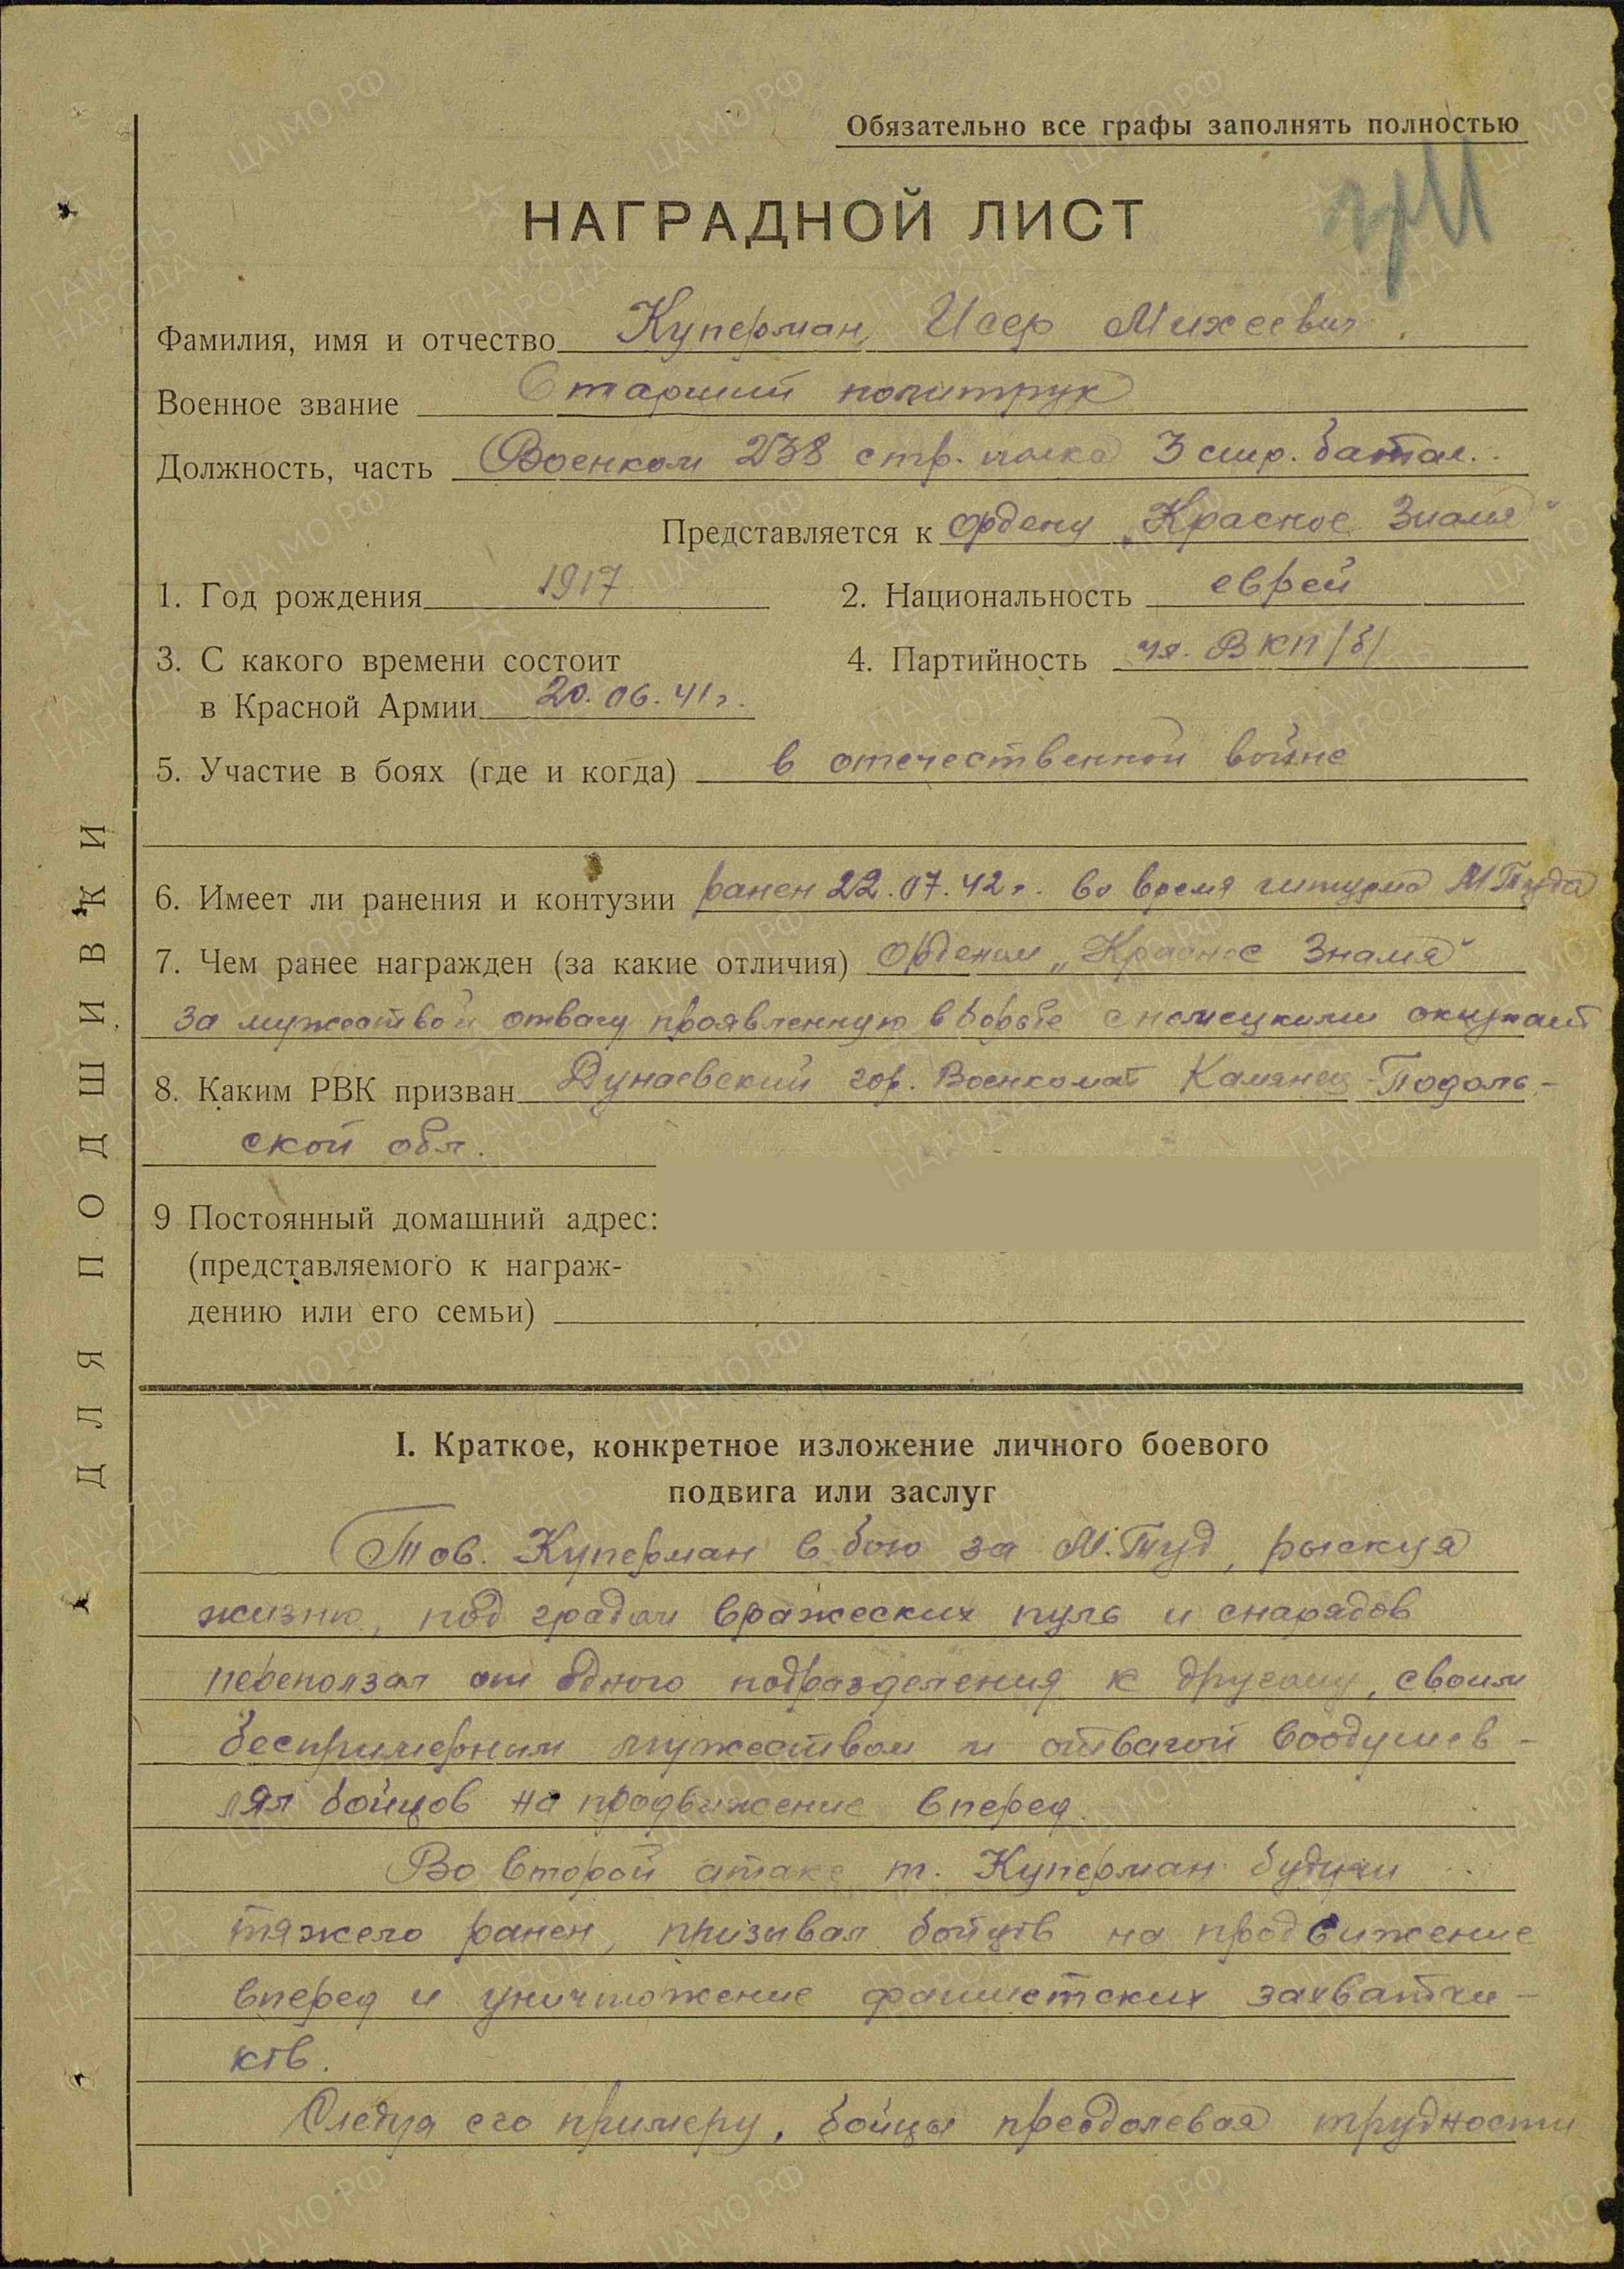 Обязательно все графы заполнять полностью
НАГРАДНОЙ ЛИСТ
Фамилия, имя и отчество Куперман, Исер Михеевич.
Военное звание Старший политрук
Должность, часть Военком 238 стр. полка 3 стр. батал.
Представляется к ордену „Красное Знамя“
1. Год рождения 1917 2. Национальность еврей
3. С какого времени состоит 4. Партийность чл. ВКП/б/
в Красной Армии 20.06.41г.
5. Участие в боях (где и когда) в отечественной войне
6. Имеет ли ранения и контузии ранен 22.07.42г. во время штурма М Туда
7. Чем ранее награжден (за какие отличия) Орденом „Красное Знамя“
за мужество и отвагу проявленную в борьбе с немецкими окупант
8. Каким РВК призван Дунаевский гор. Военкомат Камянец-Подоль-
ской обл.
9 Постоянный домашний адрес:
(представляемого к награж-
дению или его семьи)
I. Краткое, конкретное изложение личного боевого
подвига или заслуг
Тов. Куперман в бою за М.Туд, рыскуя
жизню, под градом вражеских пуль и снарядов
переползал от одного подразделения к другому, своим
беспримерным мужеством и отвагой воодушев-
лял бойцов на продвижение вперед.
Во второй атаке т. Куперман будучи
тяжело ранен, призывал бойцов на продвижение
вперед и уничтожение фашистских захватчи-
ков.
Следуя его примеру, бойцы преодолевая трудности
ДЛЯ ПОДШИВКИ
ЦАМО РФ
ПАМЯТЬ
НАРОДА